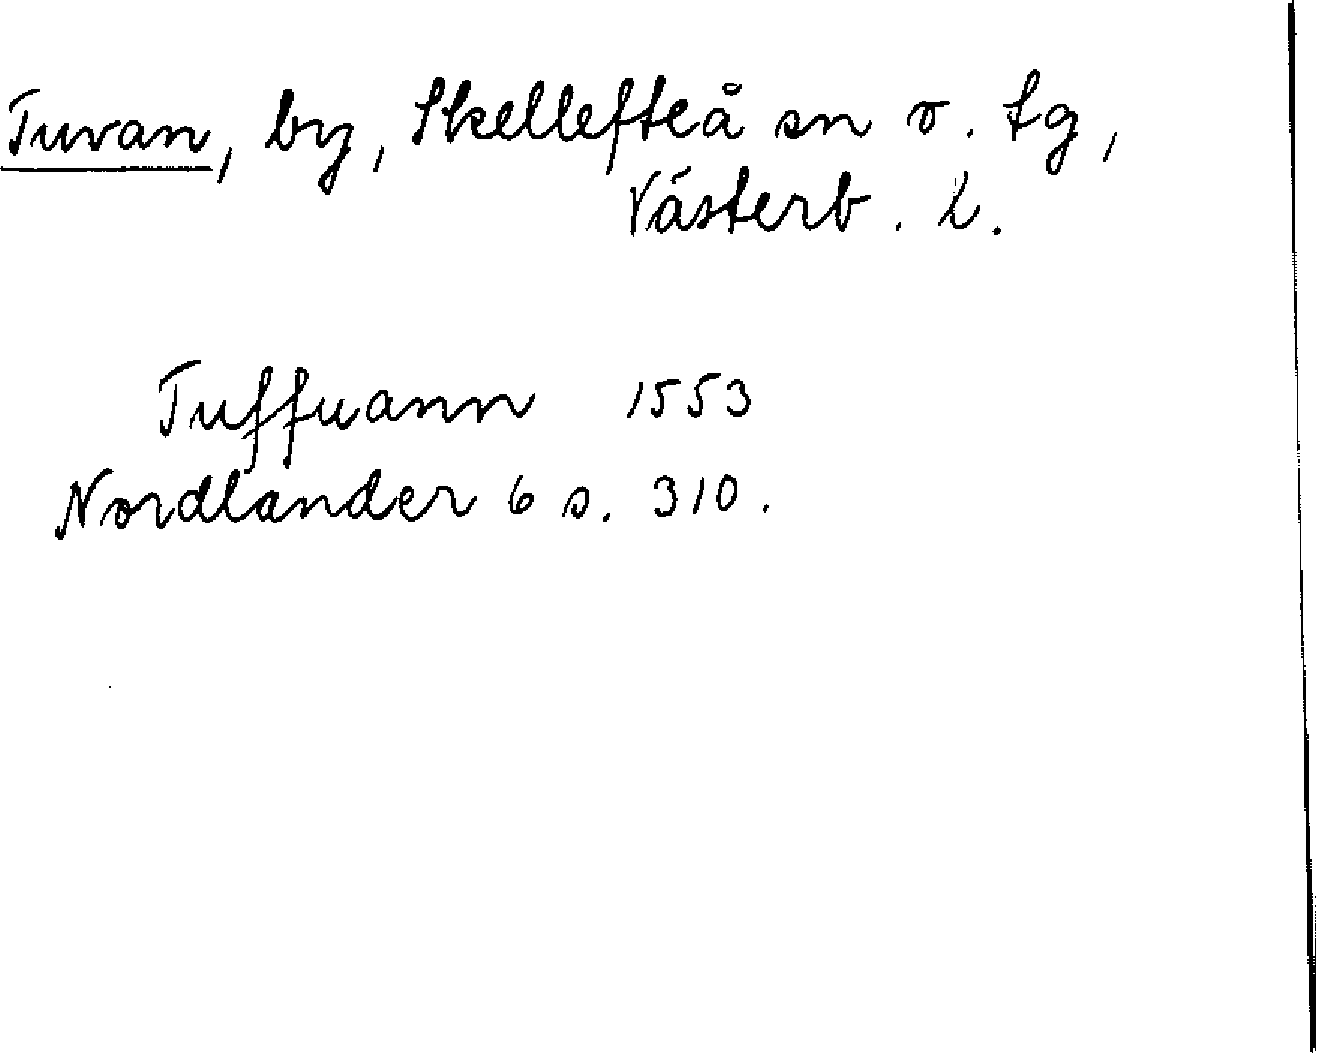 Tuvan, by, Skellefteå sn o. tg,
Västerb. l.
Tuffuann 1553
Nordlander 6 s. 310.